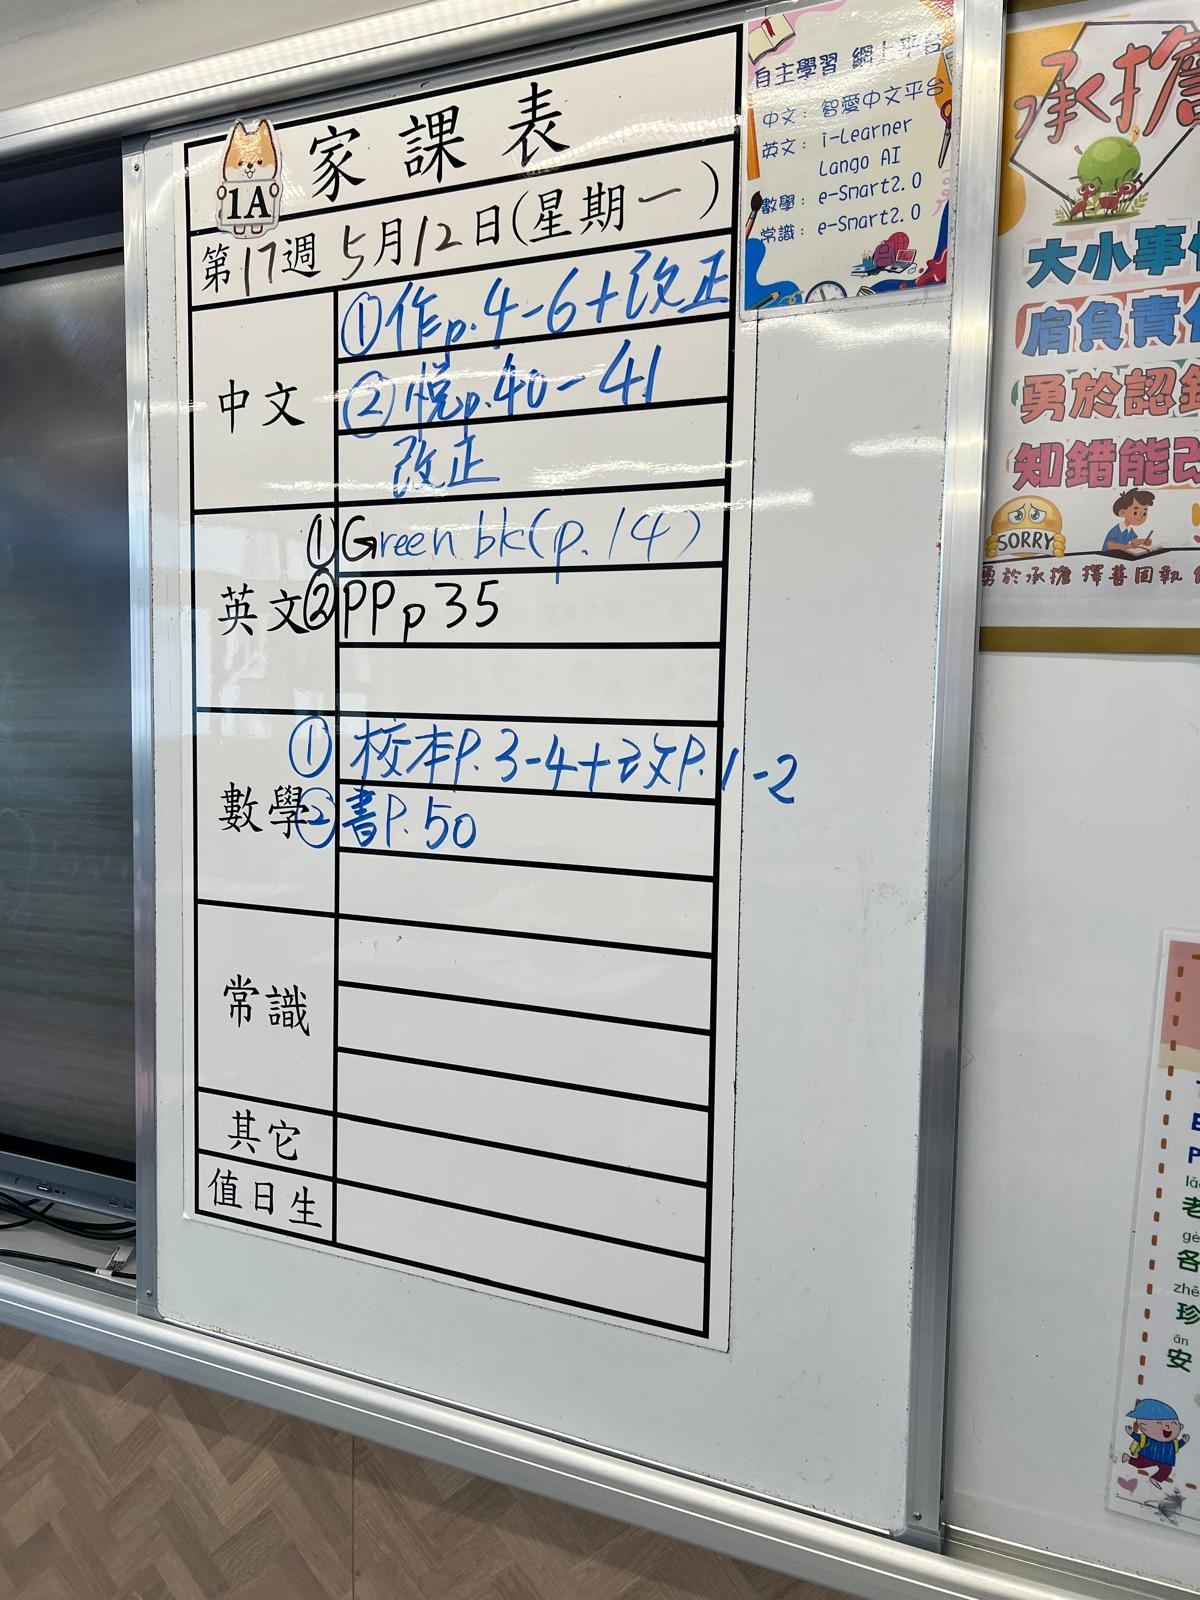 家課表
1A
第17週 5月12日(星期一)
中文
①作p.4-6+改正
②悅p.40-41
改正
英文
①Green bk(p.14)
②PP p35
數學
①校本P.3-4+改P.1-2
②書P.50
常識
其它
值日生
自主學習 網上平台
中文：智愛中文平台
英文：i-Learner
Lango AI
數學：e-Smart2.0
常識：e-Smart2.0
承擔
大小事
肩負責
勇於認
知錯能
SORRY
勇於承擔 擇善固執
lǎo
老
各
珍
ān
安